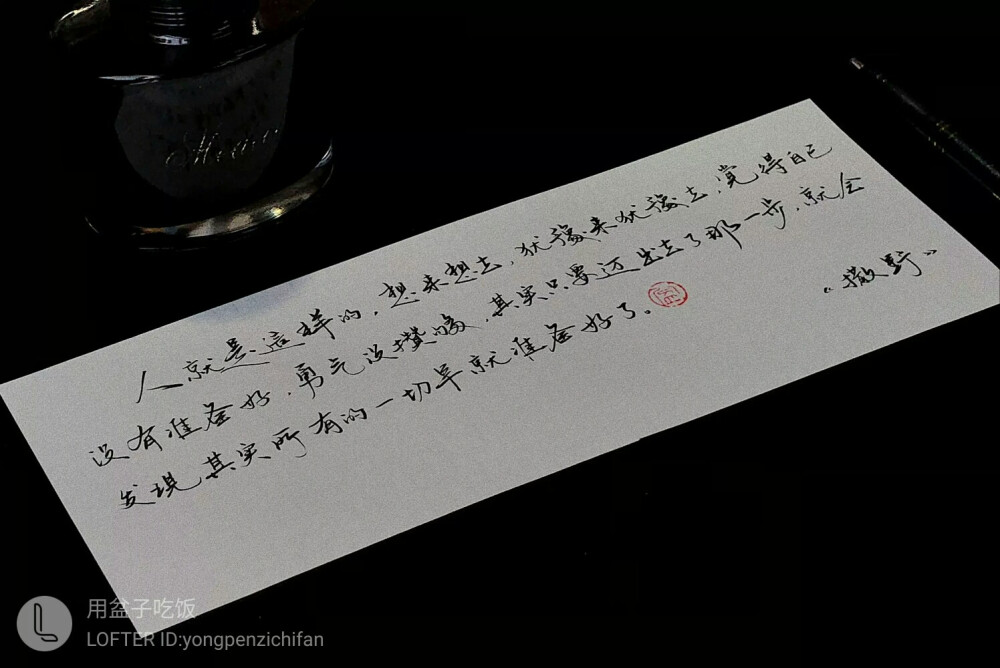 人就是這样的，想来想去，犹豫来犹豫去，觉得自己
没有准备好，勇气没攒够，其实只要迈出去了那一步，就会
发现其实所有的一切早就准备好了。
《撒野》
用盆子吃饭
LOFTER ID:yongpenzichifan